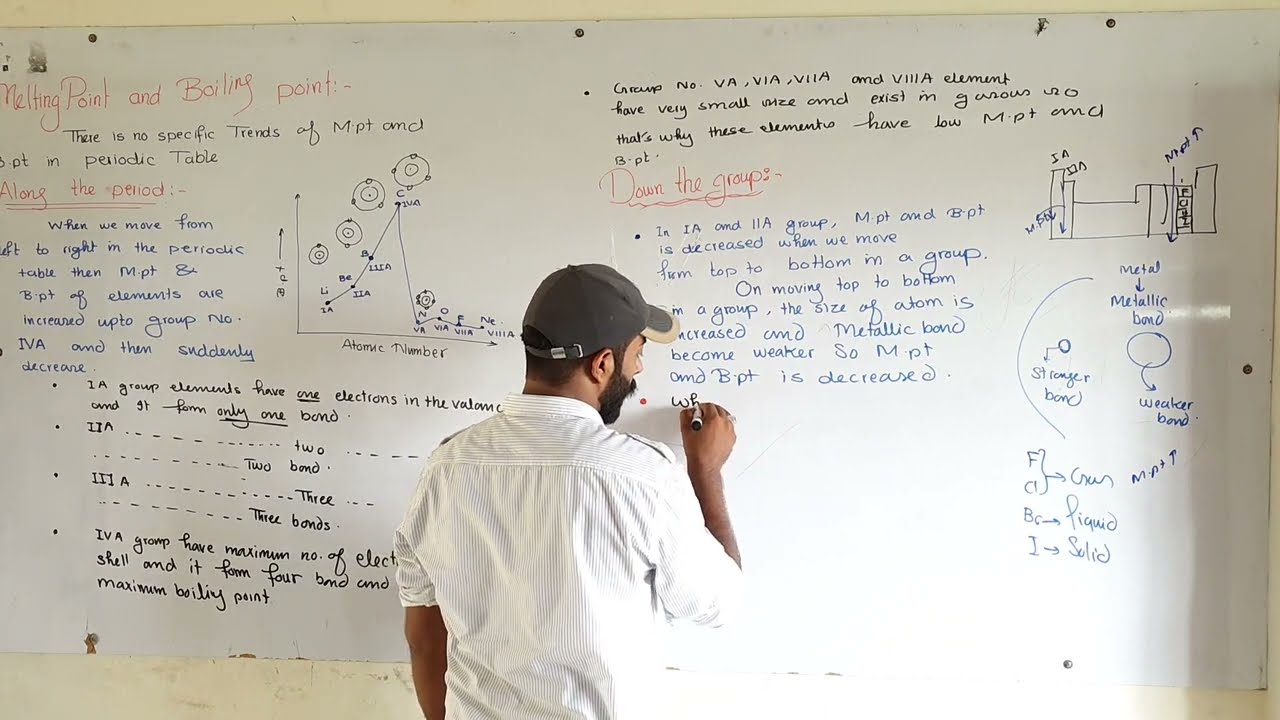 Melting Point and Boiling point:-
There is no specific Trends of M.pt and
B.pt in periodic Table
Along the period:-
When we move from
left to right in the periodic
table then M.pt &
B.pt of elements are
increased upto group No.
IVA and then suddenly
decrease.
B.pt
Li
IA
Be
IIA
B
IIIA
C
IVA
N
VA
O
VIA
F
VIIA
Ne
VIIIA
Atomic Number
• IA group elements have one electrons in the valanc
and It form only one bond.
• IIA ------------ two -----
------------ Two bond.
• IIIA ------------ Three ---
------------ Three bonds.
• IVA group have maximum no. of elect
shell and it form four bond and
maximum boiliy point
• Group No. VA, VIA, VIIA and VIIIA element
have very small size and exist in
that's why these elements have low M.pt and
B.pt.
Down the group:-
• In IA and IIA group, M.pt and B.pt
is decreased when we move
from top to bottom in a group.
On moving top to bottom
in a group, the size of atom is
increased and Metallic bond
become weaker So M.pt
and B.pt is decreased.
• Wh
IA
IIA
M.pt↓
M.pt↑
F
Cl
Br
I
Metal
↓
Metallic
bond
Stronger
bond
Weaker
bond.
F
Cl
} →
M.pt↑
Br → liquid
I → Solid